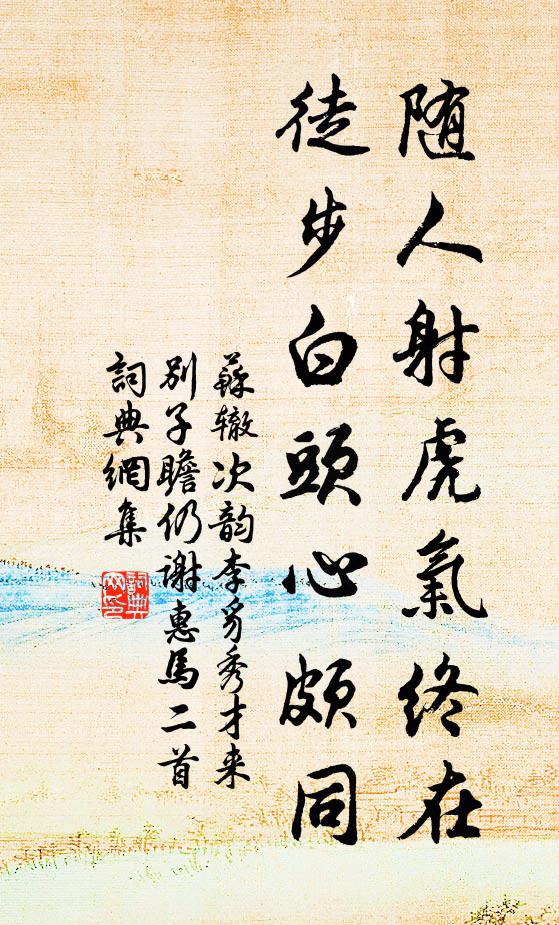 随人射虎氣终在
徒步白頭心頗同
蘇辙次韵李豸秀才来
别子瞻仍谢惠馬二首
詞典網集